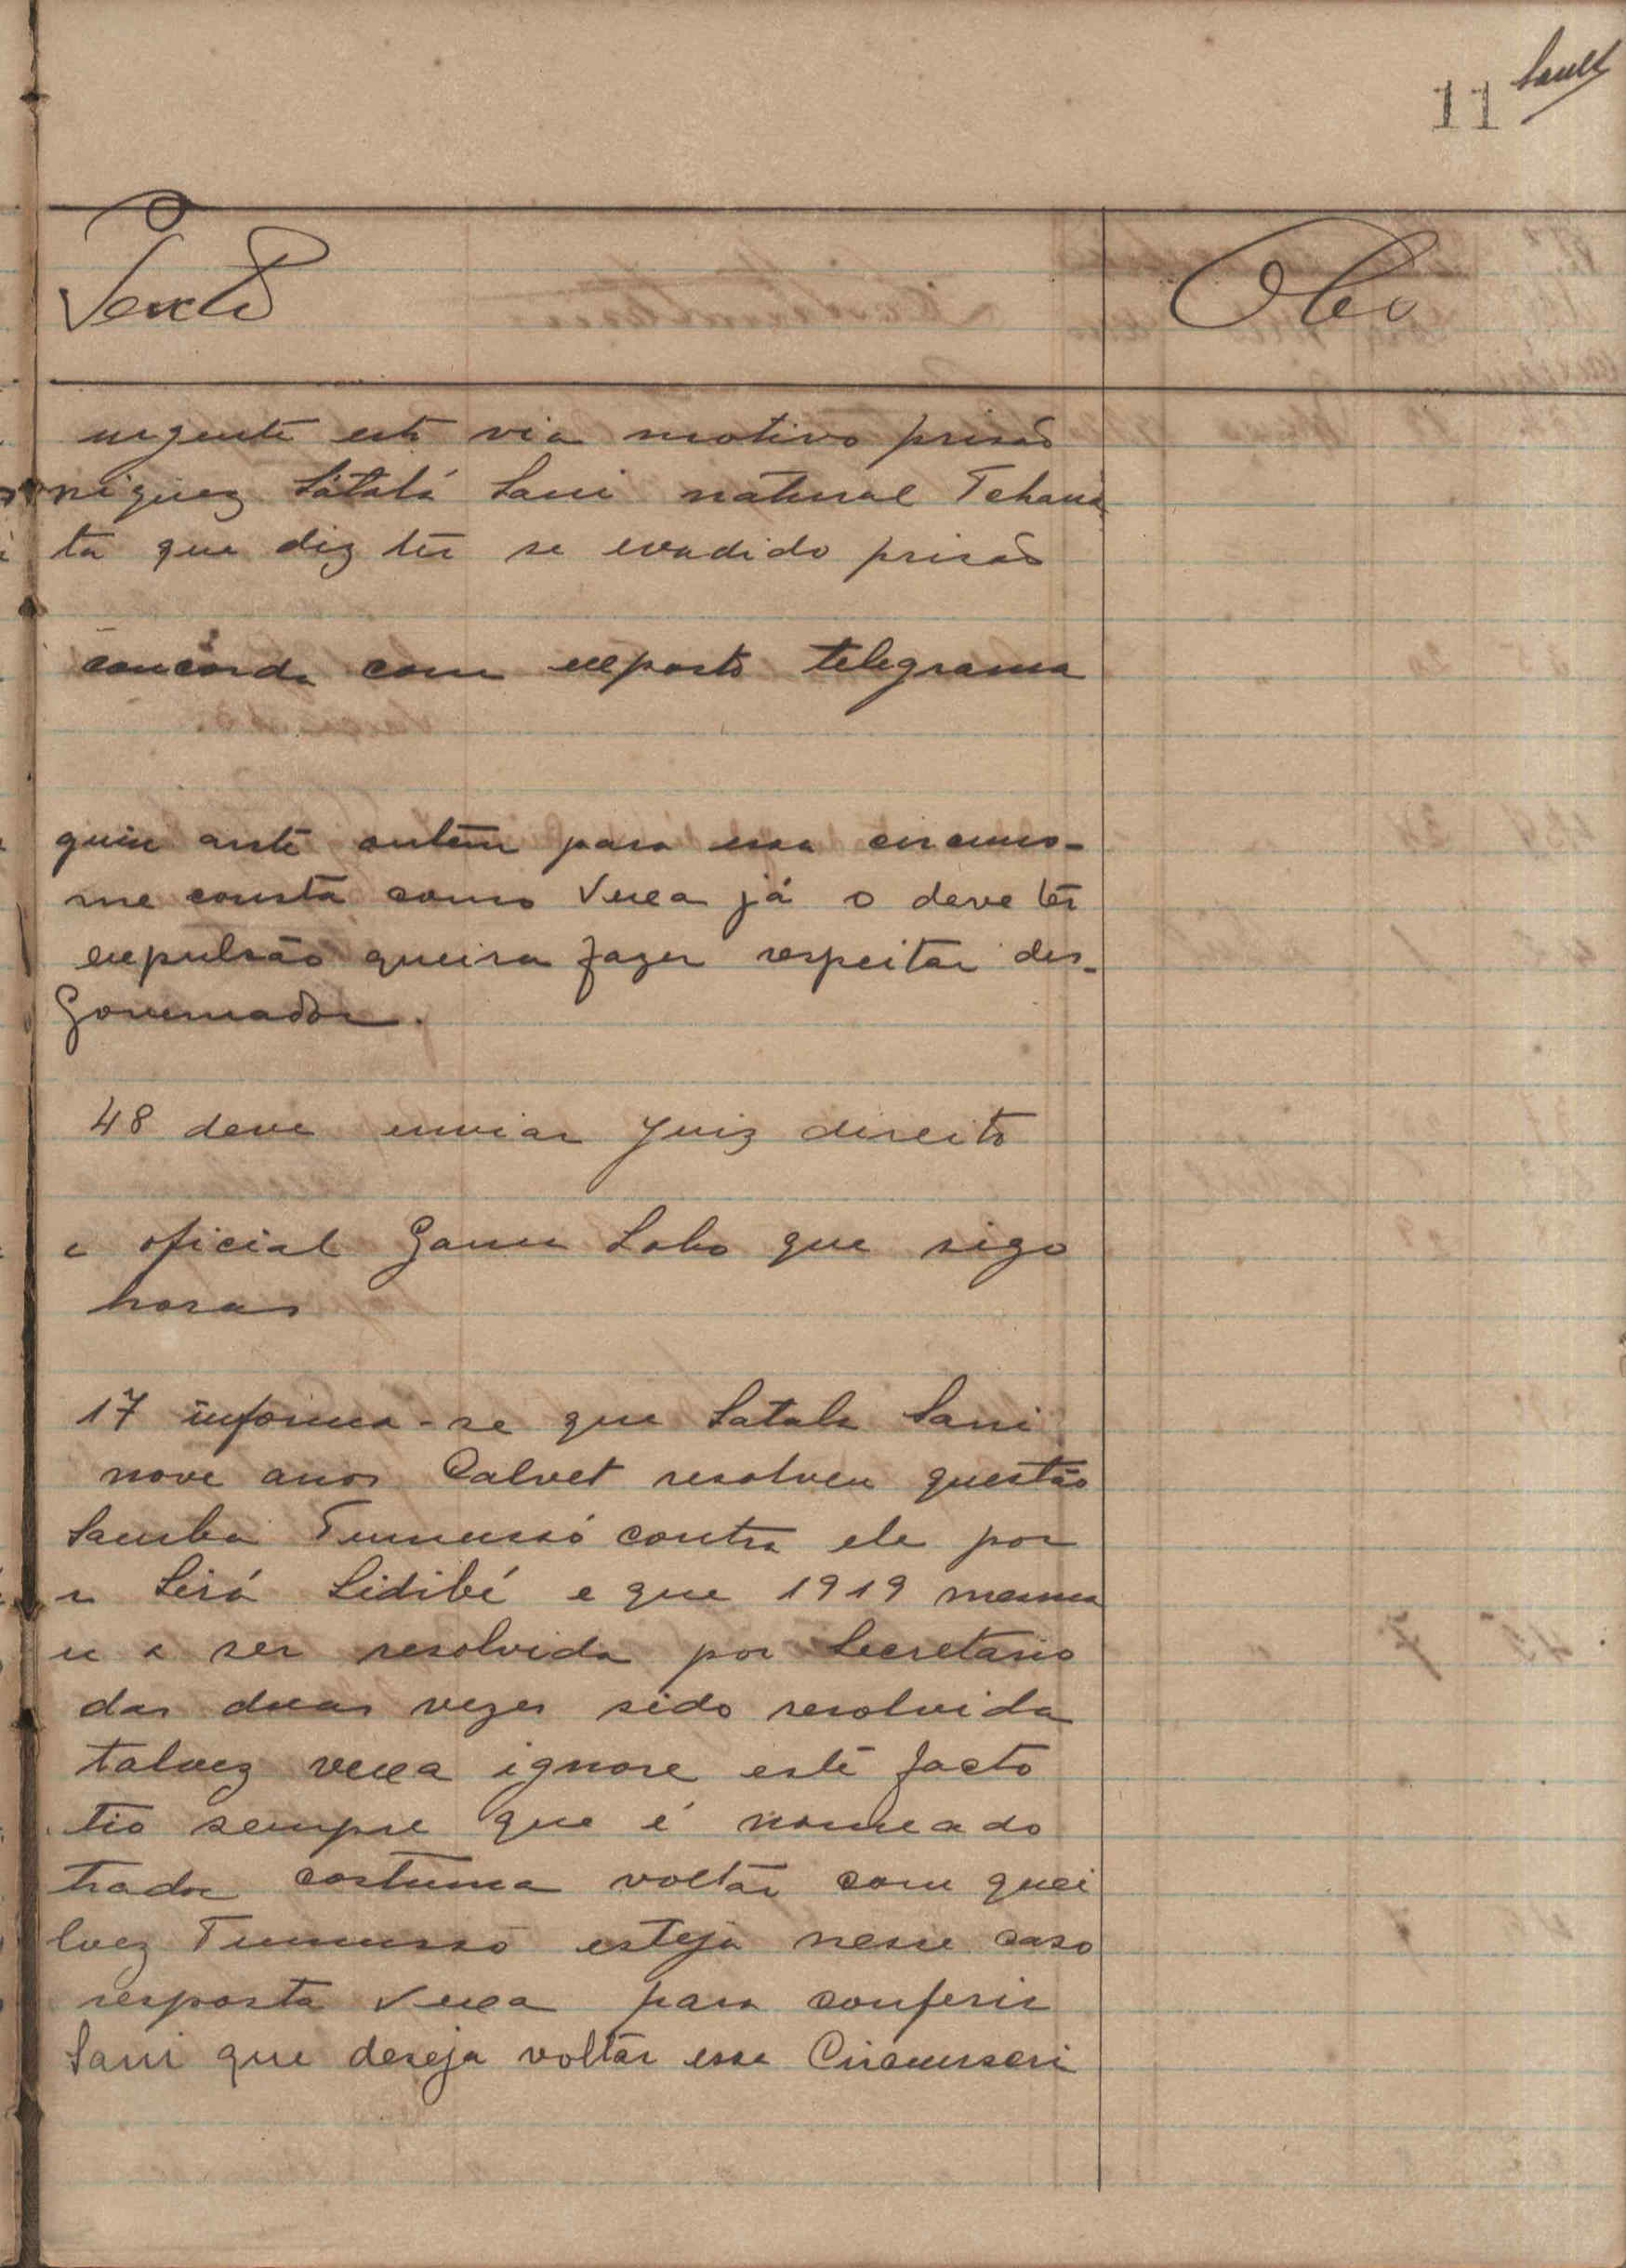 11
Texto
Obs
urgente esta via motivo prisão
niguez Sátalá Sani natural Tchaná
ta que diz ter se evadido prisão
concorda com exposto telegrama
guiu ante ontem para essa circuns-
me consta como Vexa já o deve ter
expulsão queira fazer respeitar des-
Governador.
48 deve enviar Juiz direito
e oficial Gamu Lobo que sigo
horas
17 informa-se que Satala Sani
nove anos Calvet resolveu questão
Samba Tumussó contra ele por
a Seirá Sidibé e que 1919 mesma
u a ser resolvida por Secretario
das duas vezes sido resolvida
talvez vexa ignore este facto
tio sempre que é nomeado
trador costuma voltar com quei
lvez Tumussó esteja nesse caso
resposta Vexa para conferir
Sani que deseja voltar essa Circunscri